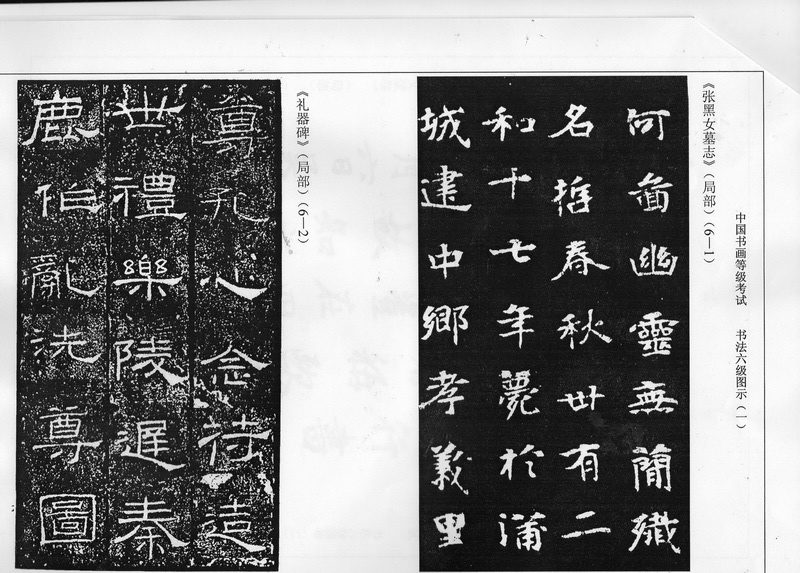 中国书画等级考试 书法六级图示（一）
《张黑女墓志》（局部）（6—1）
何啚幽靈無簡殲
名哲春秋卅有二
和十七年薨於蒲
城建中鄉孝義里
《礼器碑》（局部）（6—2）
尊孔心念待造
世禮樂陵遲秦
鹿伯亂洗尊圖